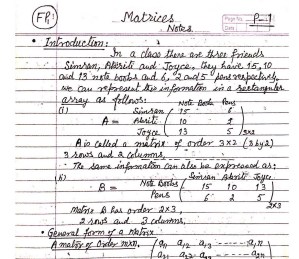 FR:
Matrices
Page No. P-1
Notes.
• Introduction:
In a class there are three friends
Simran, Abriti and Joyce, they have 15, 10
and 13 note books and 6, 2 and 5 pens respectively,
we can represent this information in a rectangular
array as follows:
Note Book Pens
(i) Simran 15 6
A = Abriti 10 2
Joyce 13 5 3x2
A is called a matrix of order 3x2 (3 by 2)
3 rows and 2 columns,
The same information can also be expressed as:
(ii) Simran Abriti Joyce
B = Note Books 15 10 13
Pens 6 2 5 2x3
Matrix B has order 2x3,
2 rows and 3 columns,
• General form of a Matrix
A matrix of order mxn, a11 a12 a13 ---- a1n
a21 a22